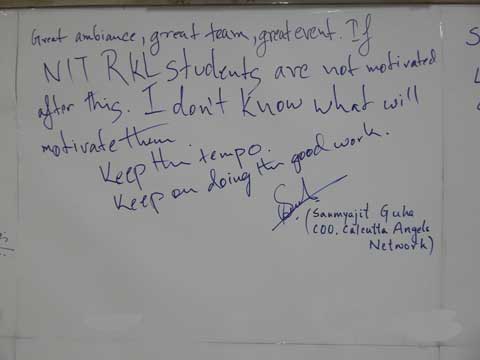 Great ambiance, great team, great event. If
NIT RKL students are not motivated
after this. I don't know what will
motivate them.
Keep the tempo.
Keep on doing the good work.
(Saumyajit Guha
COO, Calcutta Angels
Network)